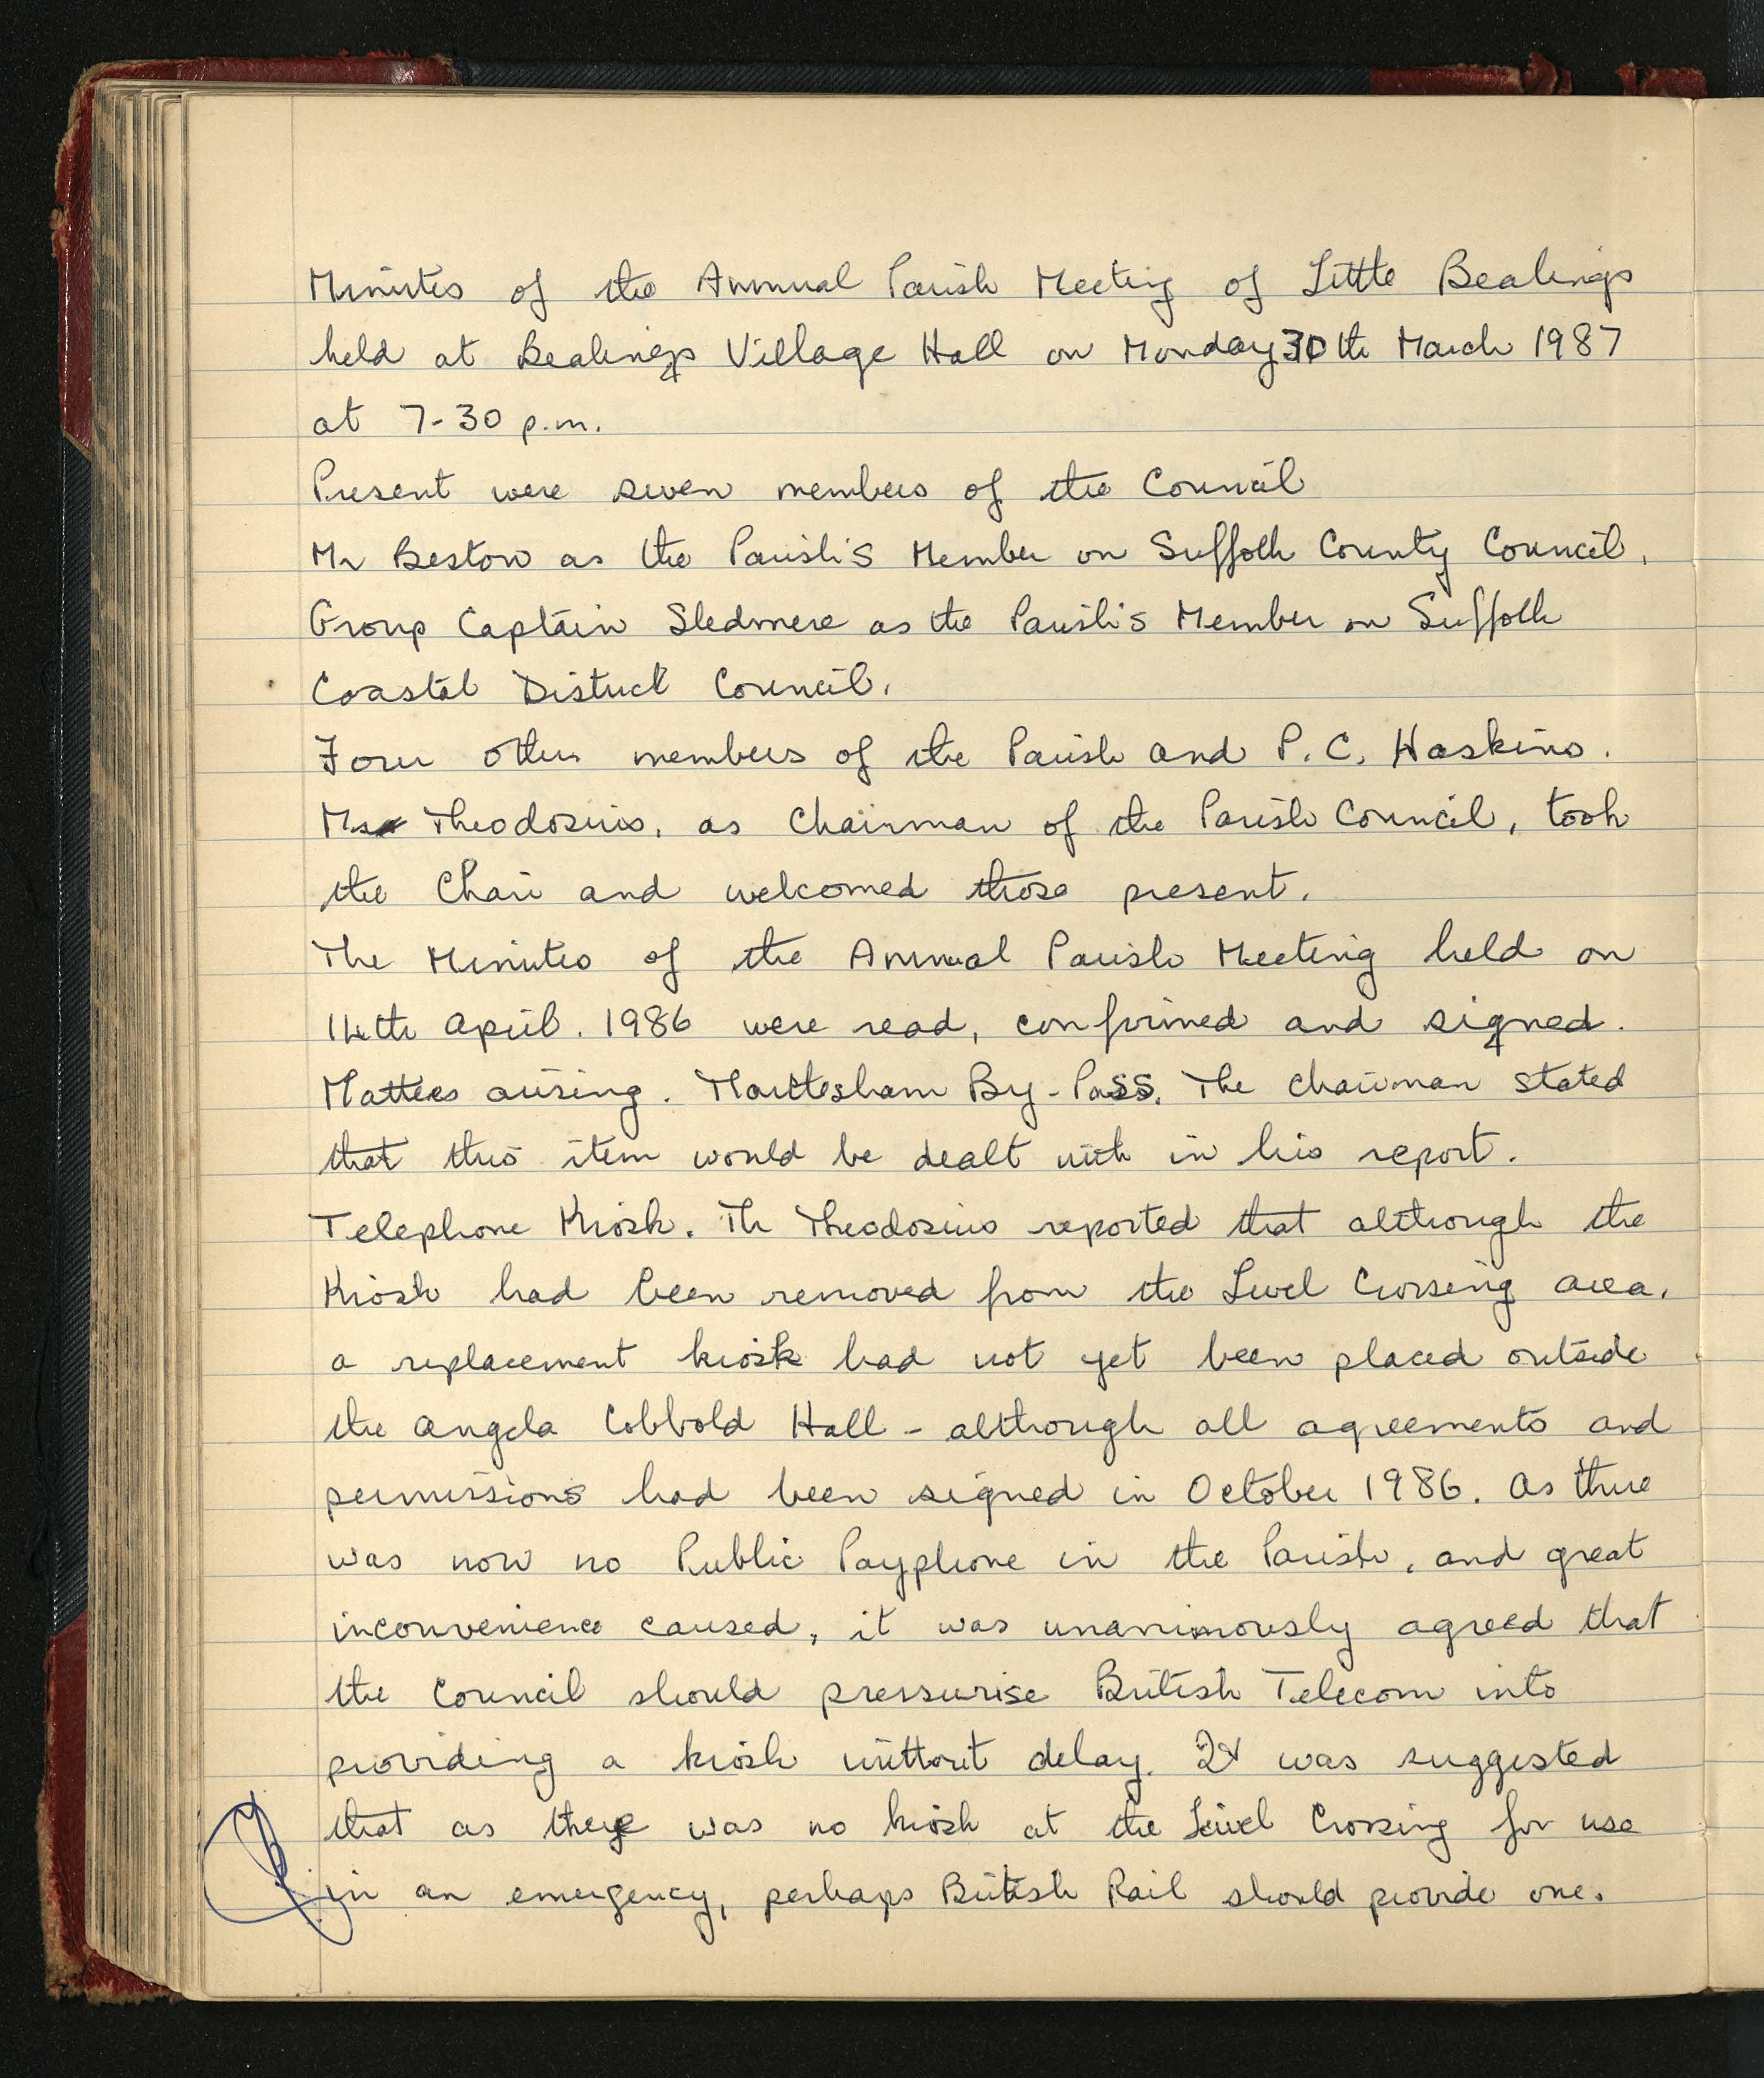 Minutes of the Annual Parish Meeting of Little Bealings
held at Bealings Village Hall on Monday 30th March 1987
at 7-30 p.m.
Present were seven members of the Council
Mr Beston as the Parish's Member on Suffolk County Council.
Group Captain Sledmere as the Parish's Member on Suffolk
Coastal District Council.
Four other members of the Parish and P.C. Haskins.
Mr Theodosius, as Chairman of the Parish Council, took
the Chair and welcomed those present.
The Minutes of the Annual Parish Meeting held on
14th April. 1986 were read, confirmed and signed.
Matters arising. Martlesham By-Pass. The Chairman stated
that this item would be dealt with in his report.
Telephone Kiosk. Mr Theodosius reported that although the
Kiosk had been removed from the Level Crossing area,
a replacement kiosk had not yet been placed outside
the Angela Cobbold Hall - although all agreements and
permissions had been signed in October 1986. As there
was now no Public Payphone in the Parish, and great
inconvenience caused, it was unanimously agreed that
the Council should pressurise British Telecom into
providing a kiosk without delay. It was suggested
that as there was no kiosk at the Level Crossing for use
in an emergency, perhaps British Rail should provide one.